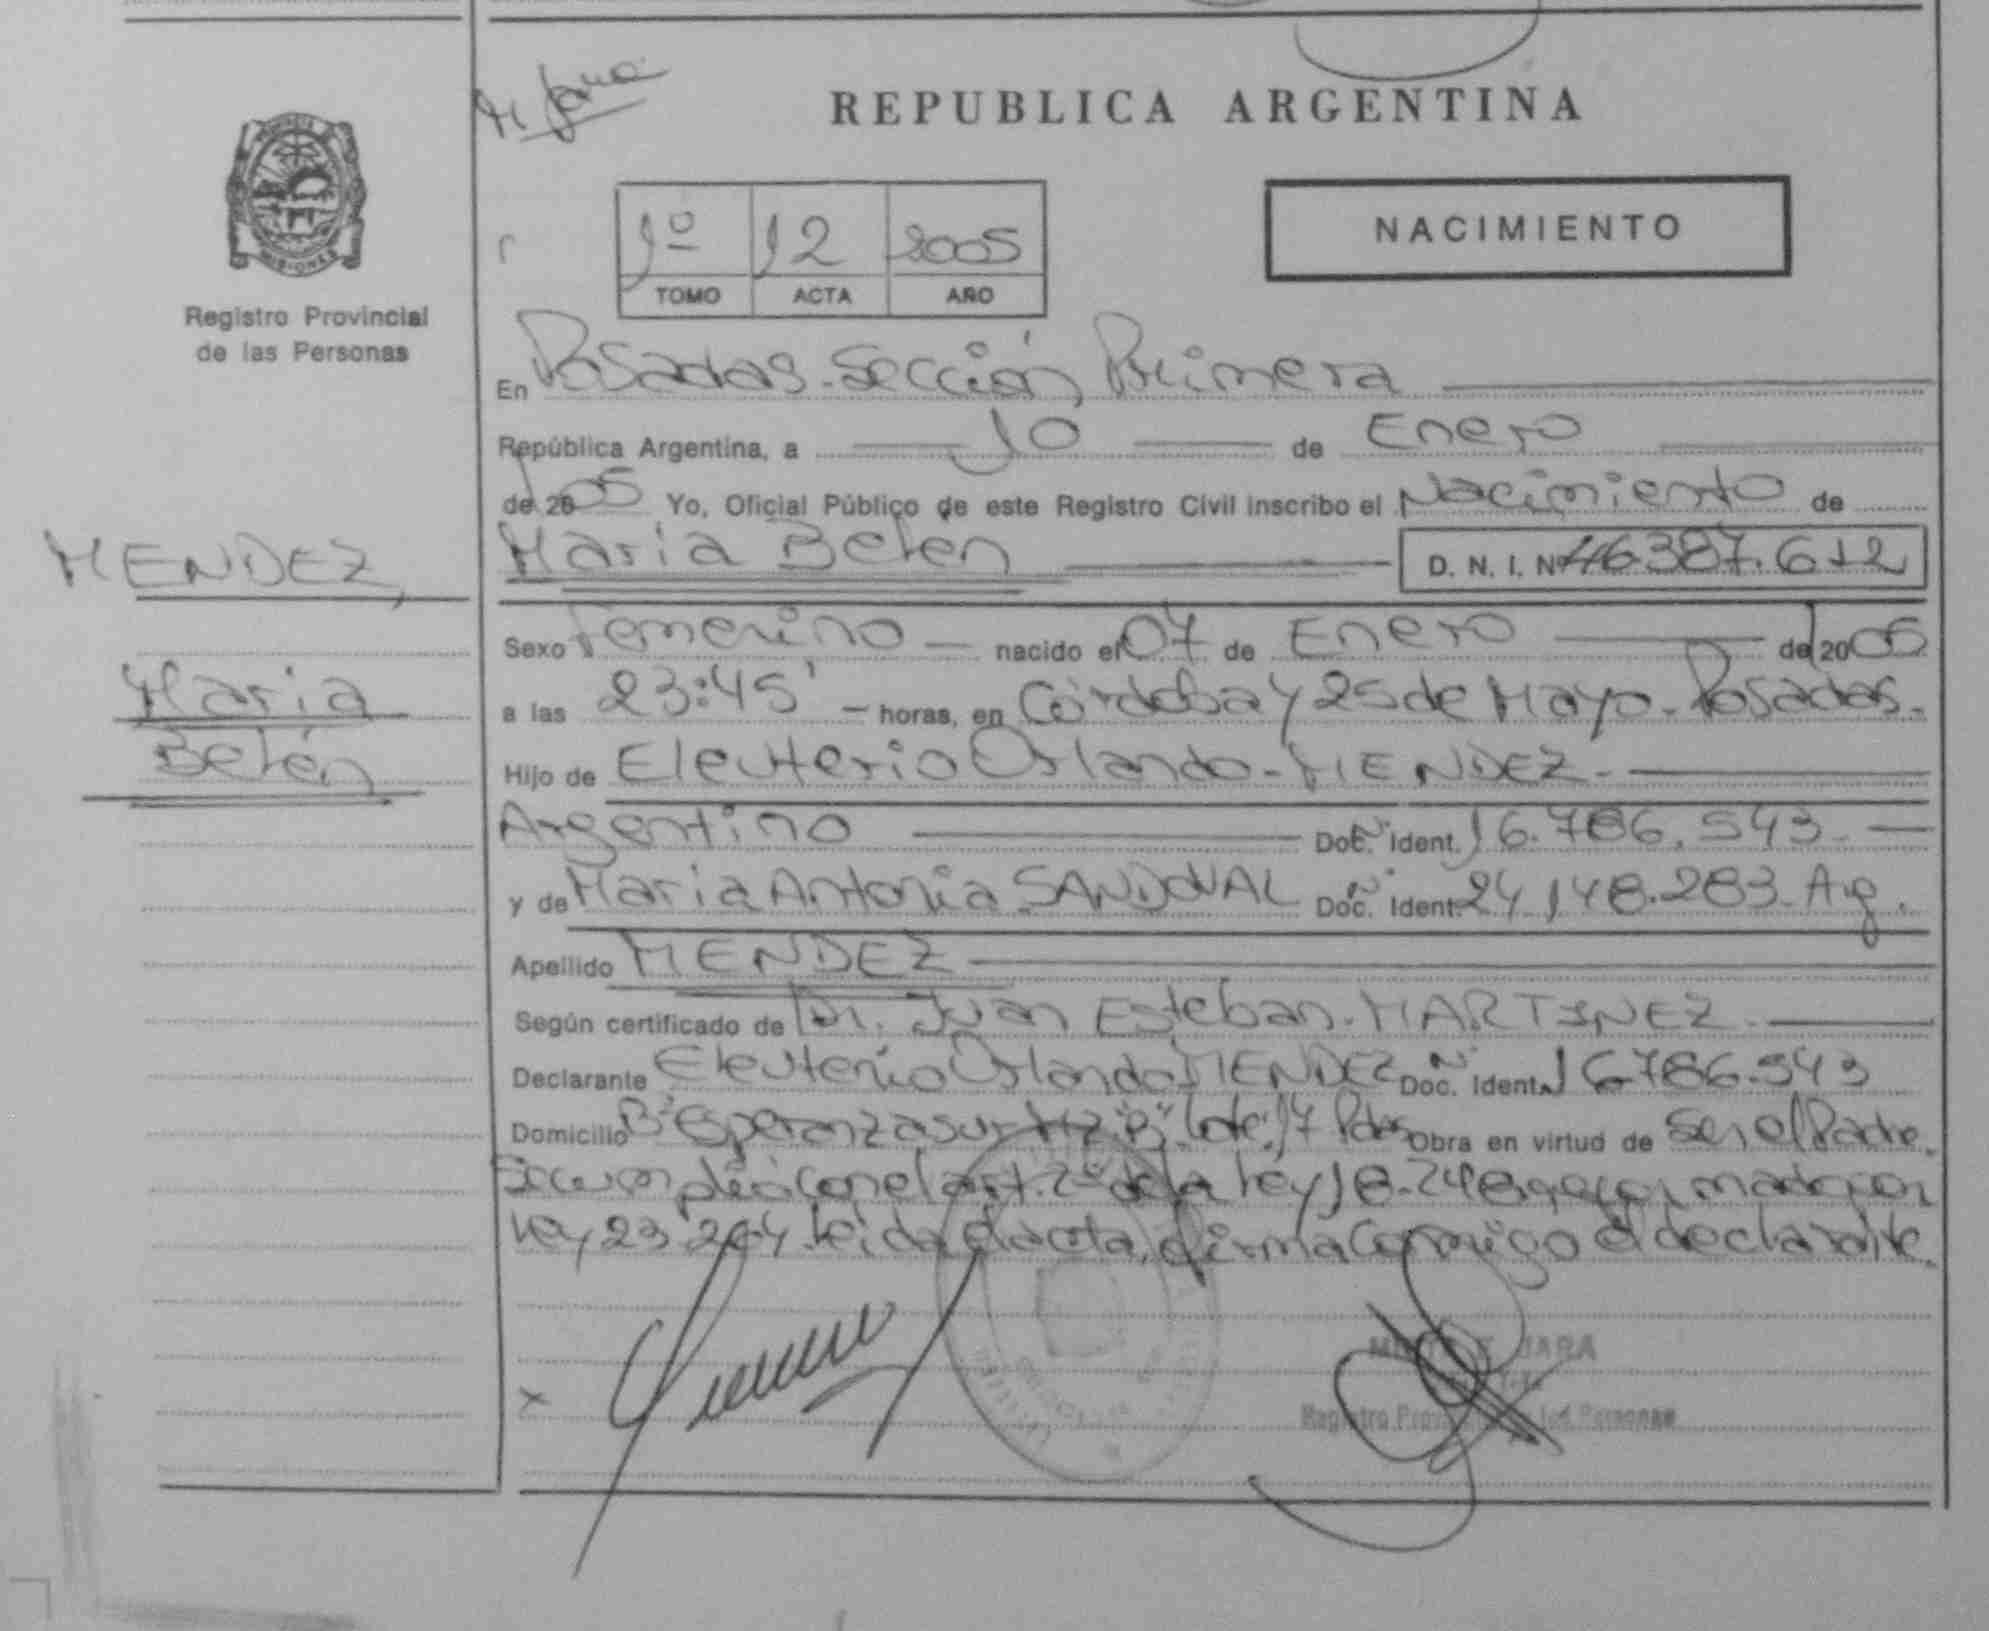 M Jara
REPUBLICA ARGENTINA
MISIONES
Registro Provincial
de las Personas
1º 12 2005
TOMO ACTA AÑO
NACIMIENTO
En Posadas. Sección Primera
República Argentina, a 10 de Enero
de 2005 Yo, Oficial Público de este Registro Civil inscribo el Nacimiento de
María Belen D. N. I. Nº 46387.612
MENDEZ,
María
Belén
Sexo Femenino nacido el 07 de Enero de 2005
a las 23:45' horas, en Córdoba y 25 de Mayo. Posadas.
Hijo de Eleuterio Orlando. MENDEZ.
Argentino Doc. Nº Ident. 16.786.543.
y de Maria Antonia SANDOVAL Doc. Nº Ident. 24.148.283. Arg.
Apellido MENDEZ
Según certificado de Dr. Juan Esteban. MARTINEZ.
Declarante Eleuterio Orlando MENDEZ Doc. Nº Ident. 16786.543
Domicilio Bº Esperanza sur Mz "B" Lote: 17 Pdas Obra en virtud de ser el Padre.
Se cumplió con el art. 2º de la Ley 18.248 por
Ley 23264. Leida el acta, firma conmigo el declarante.
JARA
Registro Provincial de las Personas